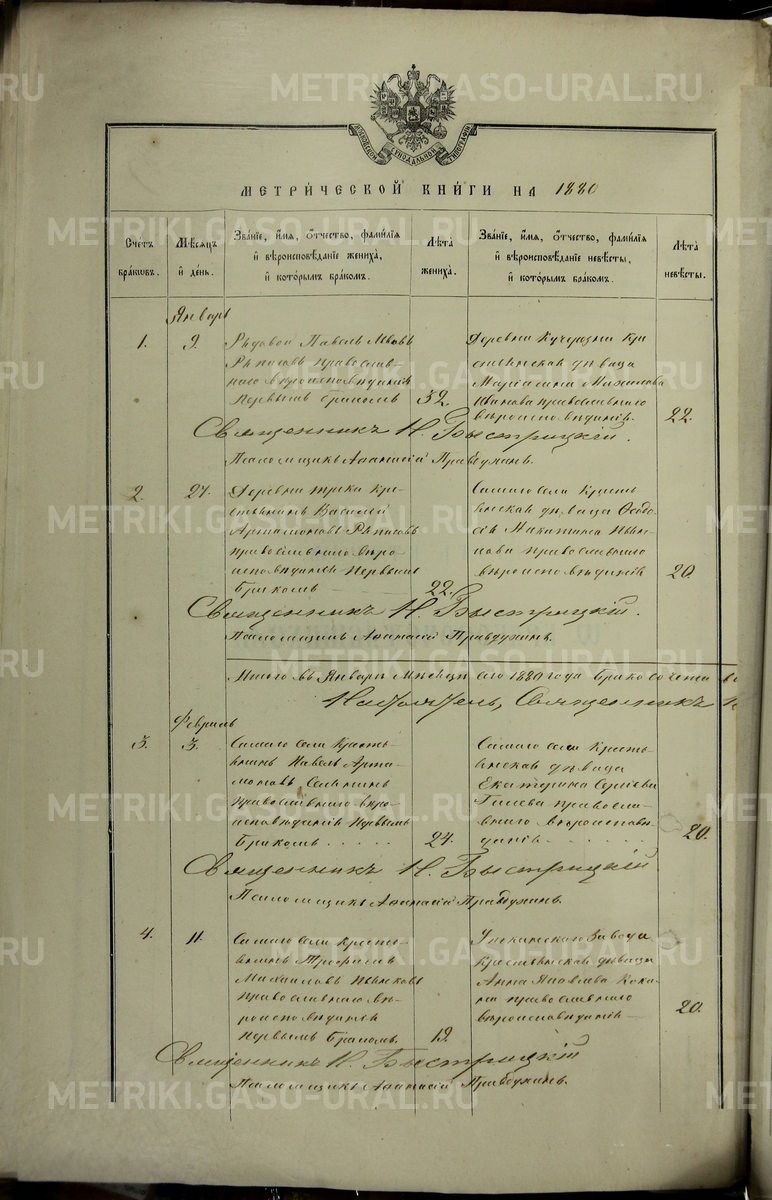 METRIKI.GASO-URAL.RU
МОСКОВСКОЙ СѴНОДАЛЬНОЙ ТИПОГРАФІИ
МЕТРИ́ЧЕСКОЙ КНИ́ГИ НА 1880
Сче́тъ бра́ковъ.
Мѣ́сяцъ и҆ де́нь.
Зва́нїе, и҆́мѧ, ѻ҆́тчество, фами́лїѧ
и҆ вѣроисповѣ́данїе жениха̀,
и҆ кото́рымъ бра́комъ.
Лѣ́та жениха̀.
Зва́нїе, и҆́мѧ, ѻ҆́тчество, фами́лїѧ
и҆ вѣроисповѣ́данїе невѣ́сты,
и҆ кото́рымъ бра́комъ.
Лѣ́та невѣ́сты.
Январь
1. 9.
Рядовой Павелъ Львовъ
Ряписовъ православ-
наго вѣроисповѣданія
первымъ бракомъ 32.
Деревни Кре-
стьянская дѣвица
Михайлова
Иванова православнаго
вѣроисповѣданія. 22.
Священникъ Н. Быстрицкій.
Псаломщикъ Аѳанасій Правдухинъ.
2. 27.
Деревни кре-
стьянинъ Василій
Артамоновъ Ряписовъ
православнаго вѣро-
исповѣданія первымъ
бракомъ 22.
Самаго села кресть
янская дѣвица Ѳеодо
сія Никитина
православнаго
вѣроисповѣданія 20.
Священникъ Н. Быстрицкій.
Псаломщикъ Аѳанасій Правдухинъ.
Итого въ Январѣ мѣсяцѣ сего 1880 года бракосочета
Настоятель, Священникъ Н
Февраль
3. 3.
Самаго села кресть-
янинъ Павелъ Арта-
моновъ
православнаго вѣро-
исповѣданія первымъ
бракомъ 24.
Самаго села кресть-
янская дѣвица
Екатерина Сергѣева
православ-
наго вѣроисповѣ-
данія 20.
Священникъ Н. Быстрицкій
Псаломщикъ Аѳанасій Правдухинъ.
4. 11.
Самаго села кресть-
янинъ Трофимъ
Михайловъ
православнаго вѣ-
роисповѣданія
первымъ бракомъ. 19.
Завода
крестьянская дѣвица
Анна Яковлева
православнаго
вѣроисповѣданія 20.
Священникъ Н. Быстрицкій
Псаломщикъ Аѳанасій Правдухинъ.